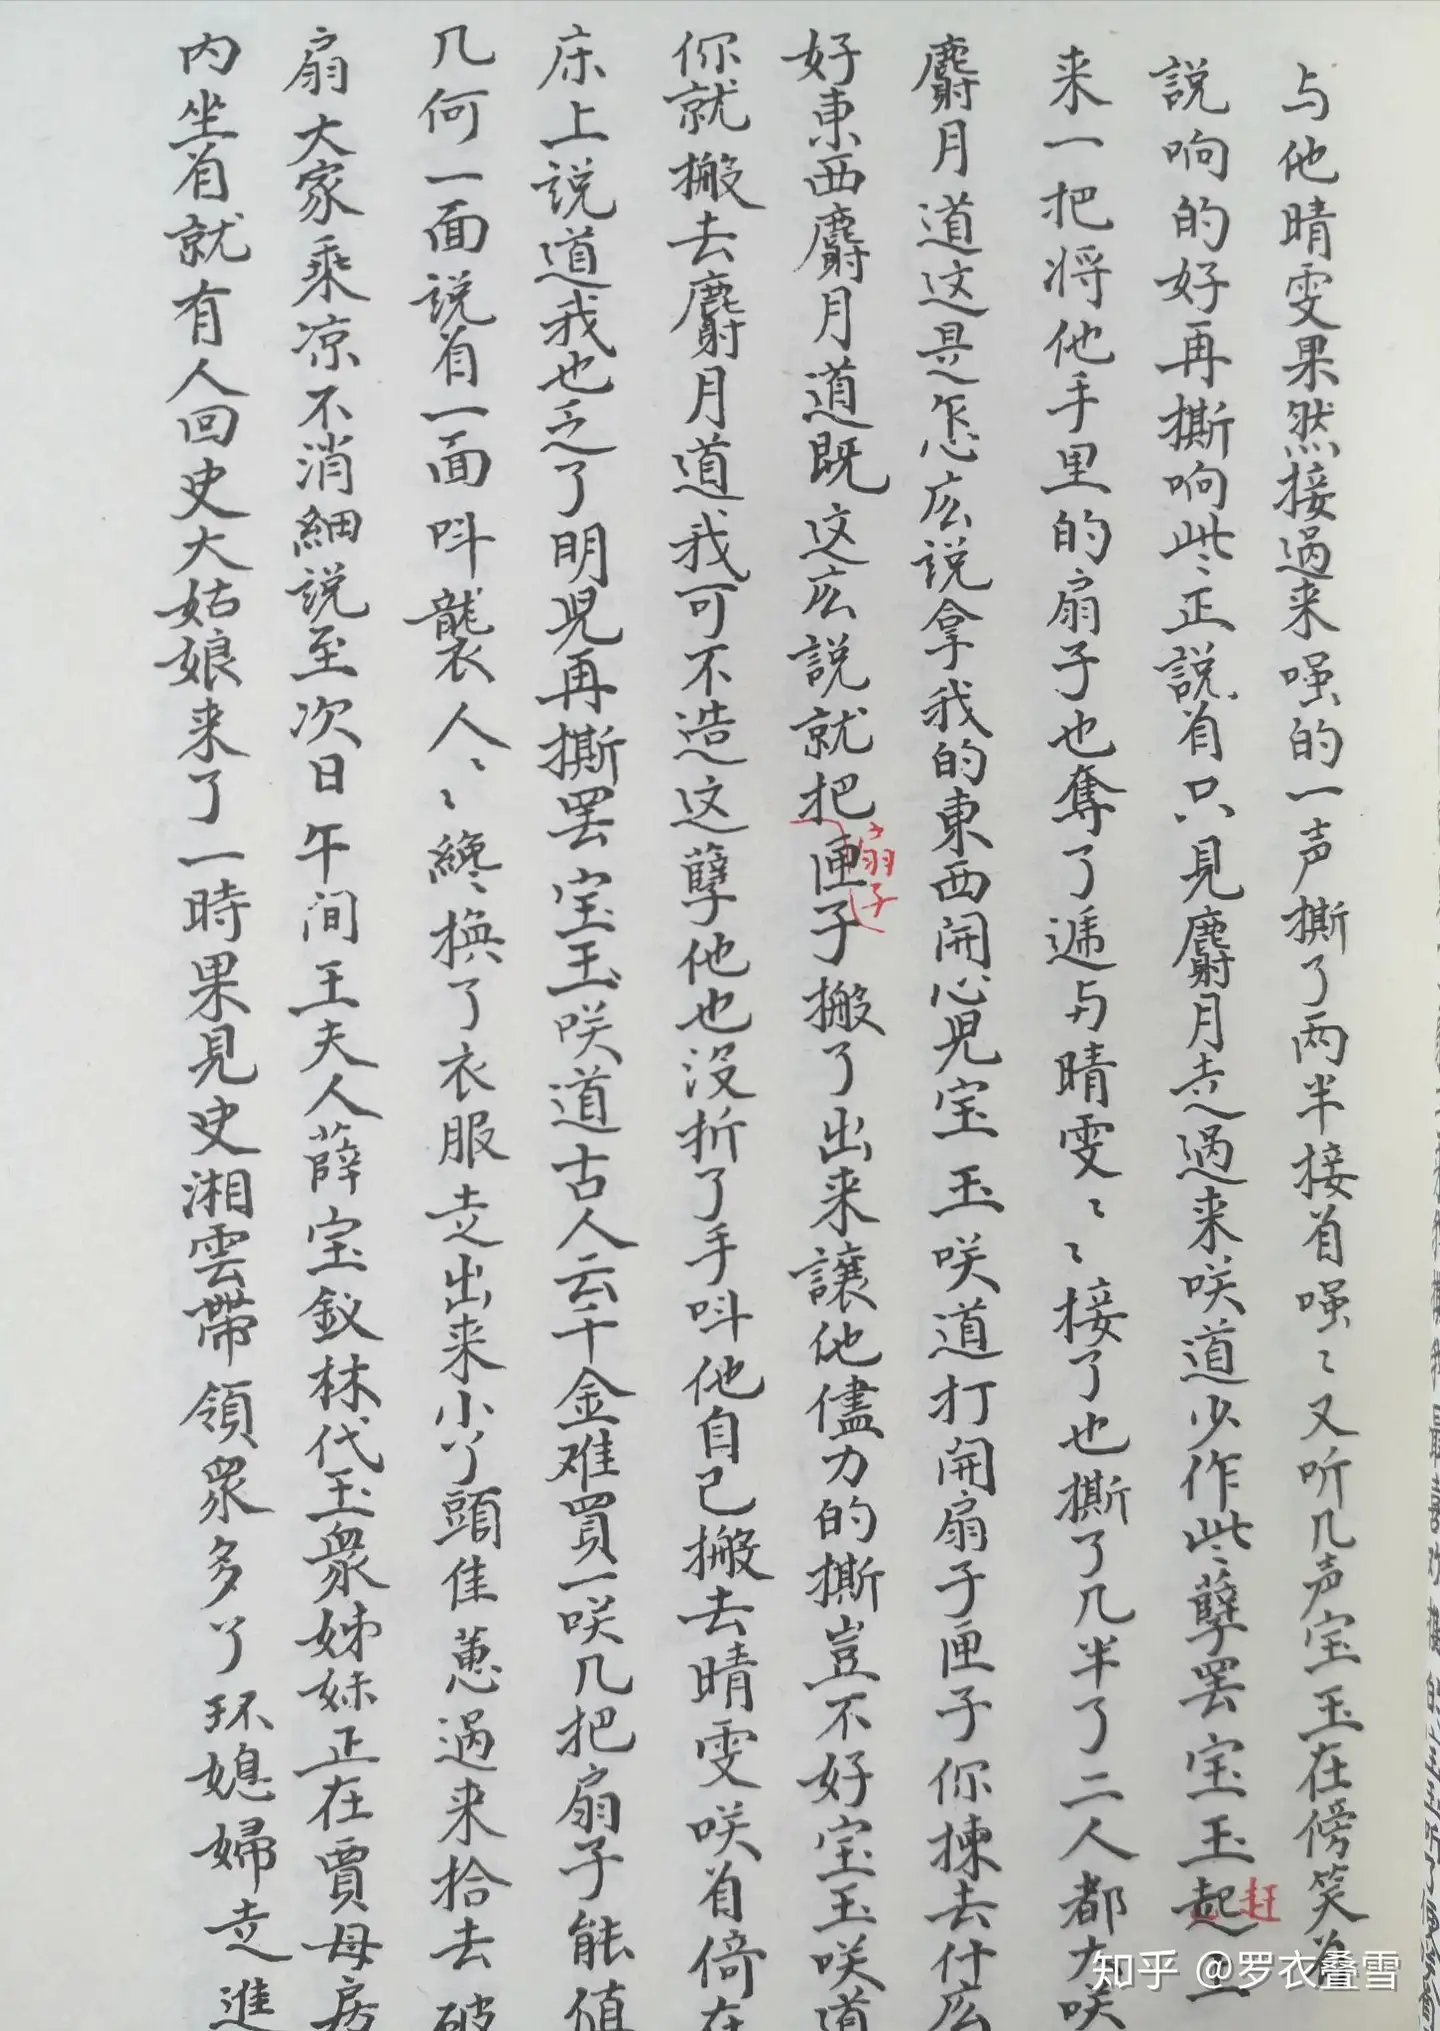 与他晴雯果然接过来嗤的一声撕了两半接着嗤〻又听几声宝玉在傍笑着
說响的好再撕响些正説着只見麝月走过来咲道少作些孽罢宝玉起上
赶
来一把将他手里的扇子也奪了递与晴雯〻接了也撕了几半了二人都大咲
麝月道这是怎広说拿我的東西開心児宝玉咲道打開扇子匣子你揀去什広
好東西麝月道既这広説就把匣子搬了出来讓他儘力的撕豈不好宝玉咲道
扇子
你就搬去麝月道我可不造这孽他也没折了手呌他自己搬去晴雯咲着倚在
床上说道我也乏了明児再撕罢宝玉咲道古人云千金难買一咲几把扇子能值
几何一面説着一面呌襲人〻纔换了衣服走出来小丫頭佳蕙过来拾去破
扇大家乘凉不消細説至次日午间王夫人薛宝釵林代玉衆姊妹正在賈母房
内坐着就有人回史大姑娘来了一時果見史湘雲帶領衆多丫环媳婦走進
知乎 @罗衣叠雪